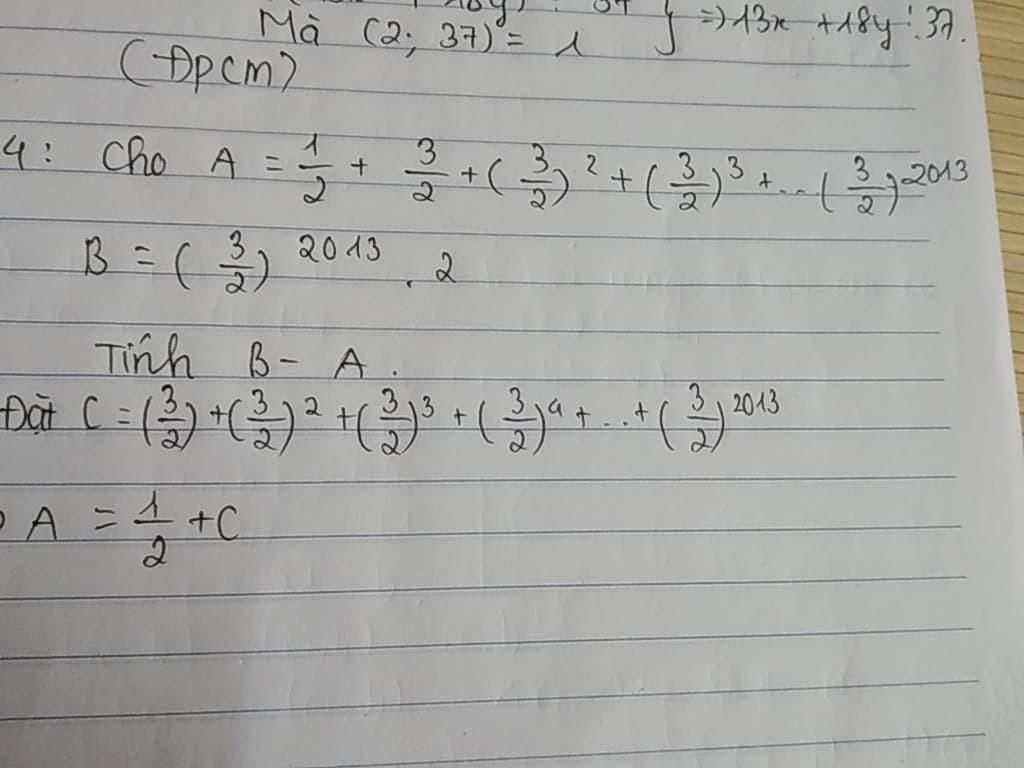 Mà (2; 37) = 1 } => 13x + 18y ⋮ 37.
(Đpcm)
4: Cho A = 1/2 + 3/2 + (3/2)^2 + (3/2)^3 + ... (3/2)^2013
B = (3/2)^2013 . 2
Tính B - A.
Đặt C = (3/2) + (3/2)^2 + (3/2)^3 + (3/2)^4 + ... + (3/2)^2013
A = 1/2 + C